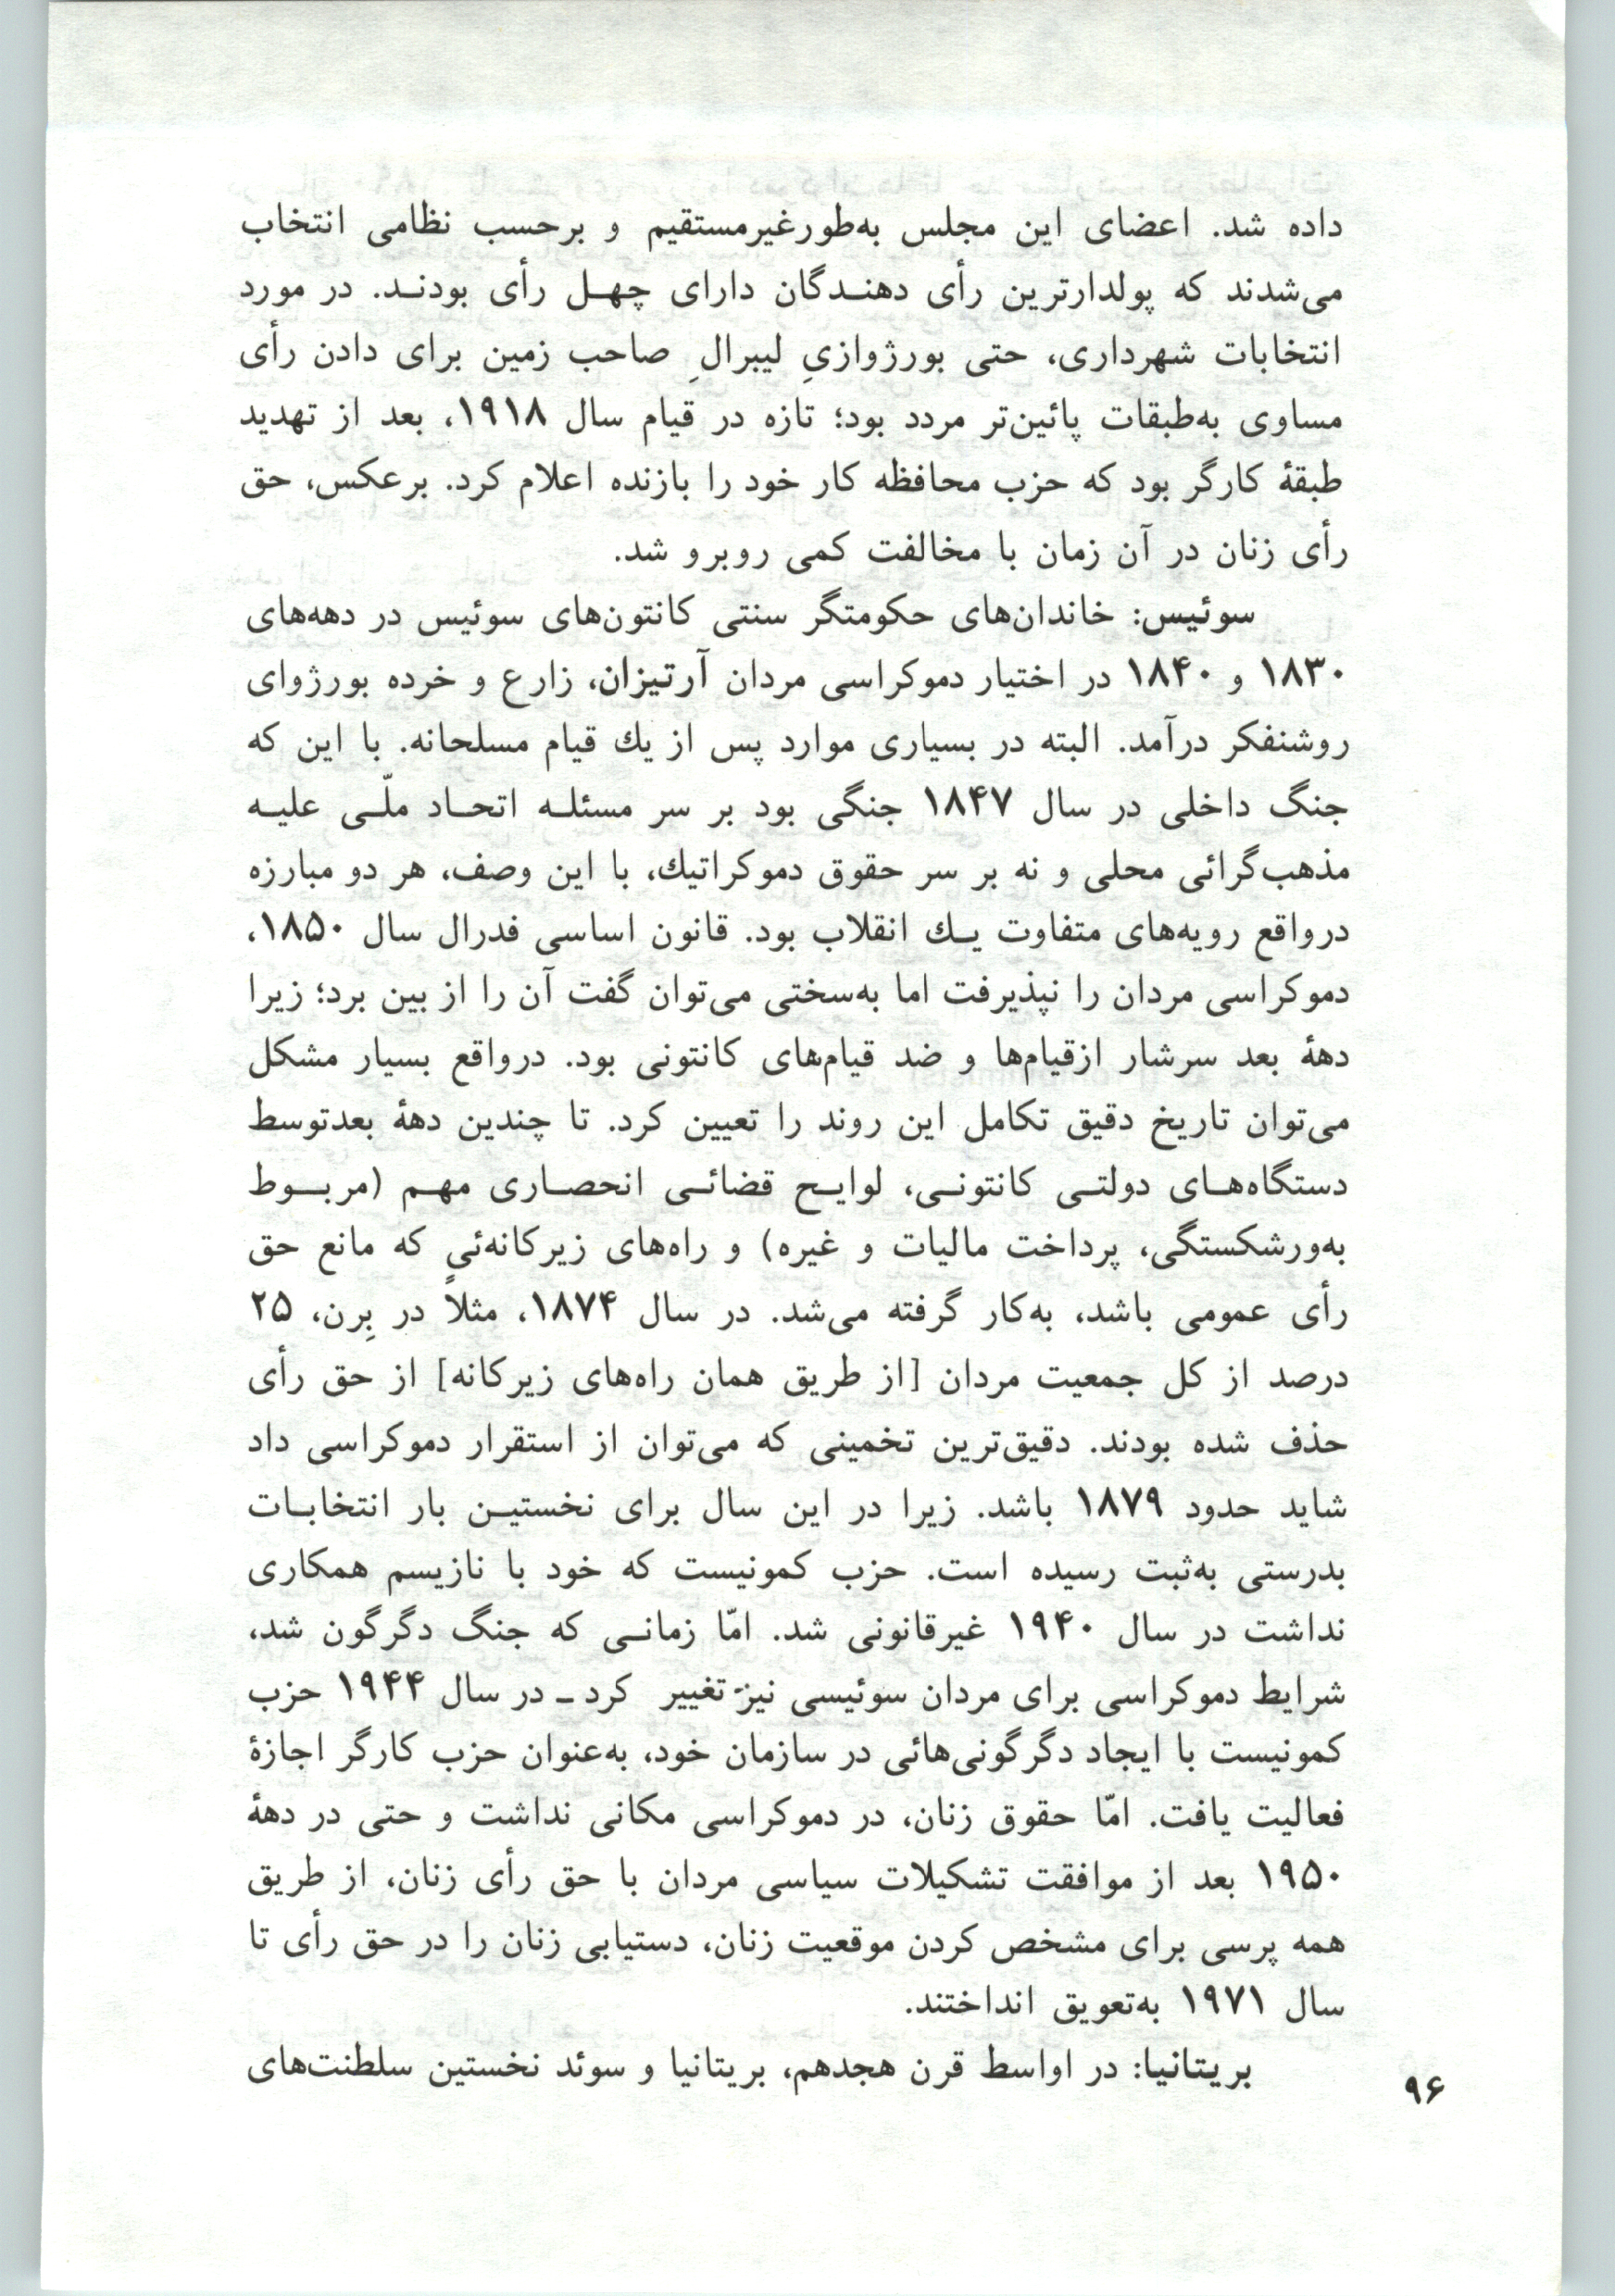 داده شد. اعضای این مجلس به‌طورغیرمستقیم و برحسب نظامی انتخاب
می‌شدند که پولدارترین رأی دهنـدگان دارای چهـل رأی بودنـد. در مورد
انتخابات شهرداری، حتی بورژوازیِ لیبرالِ صاحب زمین برای دادن رأی
مساوی به‌طبقات پائین‌تر مردد بود؛ تازه در قیام سال ۱۹۱۸، بعد از تهدید
طبقهٔ کارگر بود که حزب محافظه کار خود را بازنده اعلام کرد. برعکس، حق
رأی زنان در آن زمان با مخالفت کمی روبرو شد.
سوئیس: خاندان‌های حکومتگر سنتی کانتون‌های سوئیس در دهه‌های
۱۸۳۰ و ۱۸۴۰ در اختیار دموکراسی مردان آرتیزان، زارع و خرده بورژوای
روشنفکر درآمد. البته در بسیاری موارد پس از یك قیام مسلحانه. با این که
جنگ داخلی در سال ۱۸۴۷ جنگی بود بر سر مسئلـه اتحـاد ملّـی علیـه
مذهب‌گرائی محلی و نه بر سر حقوق دموکراتیك، با این وصف، هر دو مبارزه
درواقع رویه‌های متفاوت یـك انقلاب بود. قانون اساسی فدرال سال ۱۸۵۰،
دموکراسی مردان را نپذیرفت اما به‌سختی می‌توان گفت آن را از بین برد؛ زیرا
دههٔ بعد سرشار ازقیام‌ها و ضد قیام‌های کانتونی بود. درواقع بسیار مشکل
می‌توان تاریخ دقیق تکامل این روند را تعیین کرد. تا چندین دههٔ بعدتوسط
دستگاه‌هـای دولتـی کانتونـی، لوایـح قضائـی انحصـاری مهـم (مربـوط
به‌ورشکستگی، پرداخت مالیات و غیره) و راه‌های زیرکانه‌ئی که مانع حق
رأی عمومی باشد، به‌کار گرفته می‌شد. در سال ۱۸۷۴، مثلاً در بِرن، ۲۵
درصد از کل جمعیت مردان [از طریق همان راه‌های زیرکانه] از حق رأی
حذف شده بودند. دقیق‌ترین تخمینی که می‌توان از استقرار دموکراسی داد
شاید حدود ۱۸۷۹ باشد. زیرا در این سال برای نخستیـن بار انتخابـات
بدرستی به‌ثبت رسیده است. حزب کمونیست که خود با نازیسم همکاری
نداشت در سال ۱۹۴۰ غیرقانونی شد. امّا زمانـی که جنگ دگرگون شد،
شرایط دموکراسی برای مردان سوئیسی نیز تغییر کرد ـ در سال ۱۹۴۴ حزب
کمونیست با ایجاد دگرگونی‌هائی در سازمان خود، به‌عنوان حزب کارگر اجازهٔ
فعالیت یافت. امّا حقوق زنان، در دموکراسی مکانی نداشت و حتی در دههٔ
۱۹۵۰ بعد از موافقت تشکیلات سیاسی مردان با حق رأی زنان، از طریق
همه پرسی برای مشخص کردن موقعیت زنان، دستیابی زنان را در حق رأی تا
سال ۱۹۷۱ به‌تعویق انداختند.
بریتانیا: در اواسط قرن هجدهم، بریتانیا و سوئد نخستین سلطنت‌های
۹۶